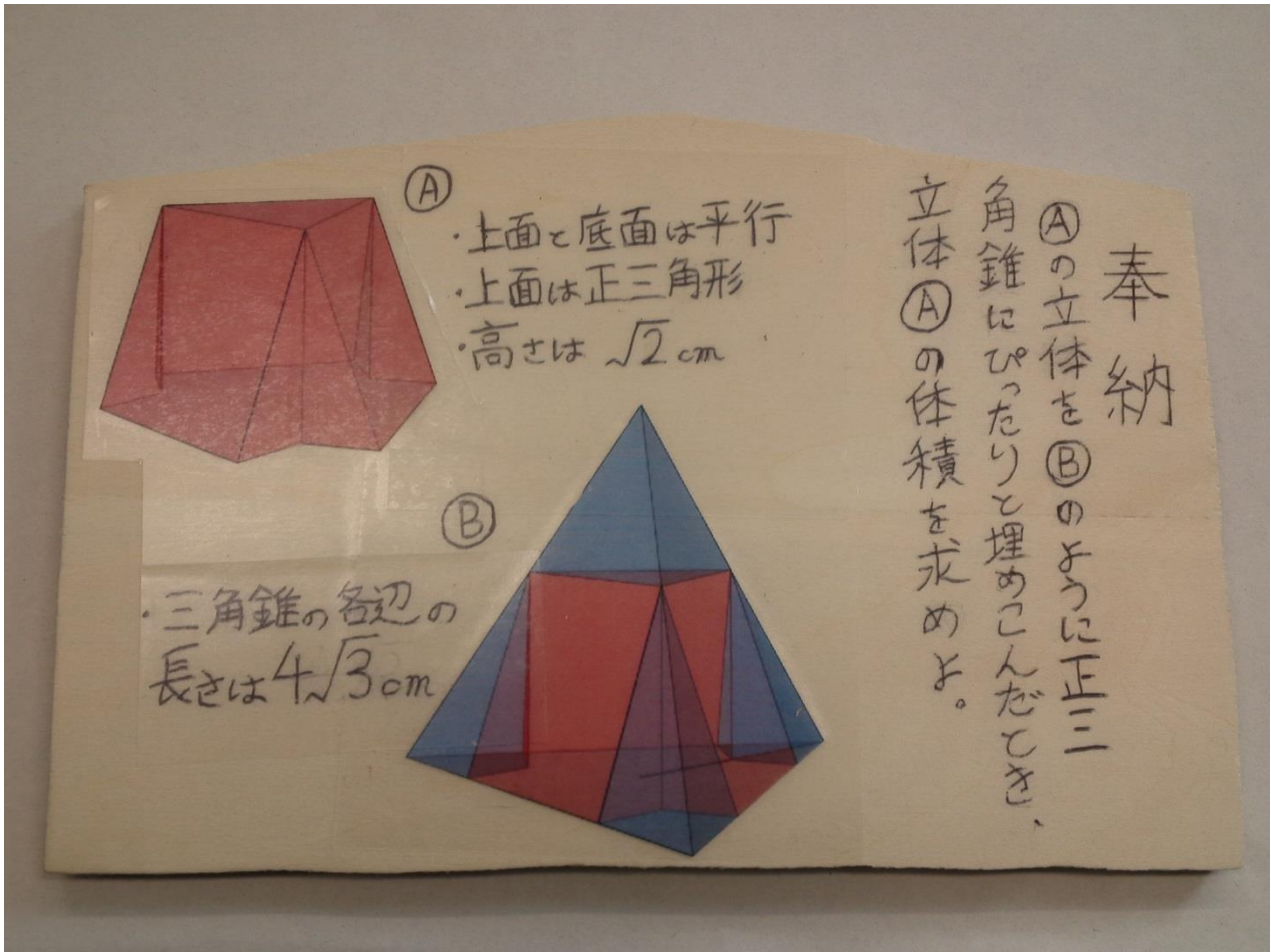 奉納
Ⓐの立体をⒷのように正三
角錐にぴったりと埋めこんだとき、
立体Ⓐの体積を求めよ。
Ⓐ
・上面と底面は平行
・上面は正三角形
・高さは √2 cm
Ⓑ
・三角錐の各辺の
長さは4√3cm